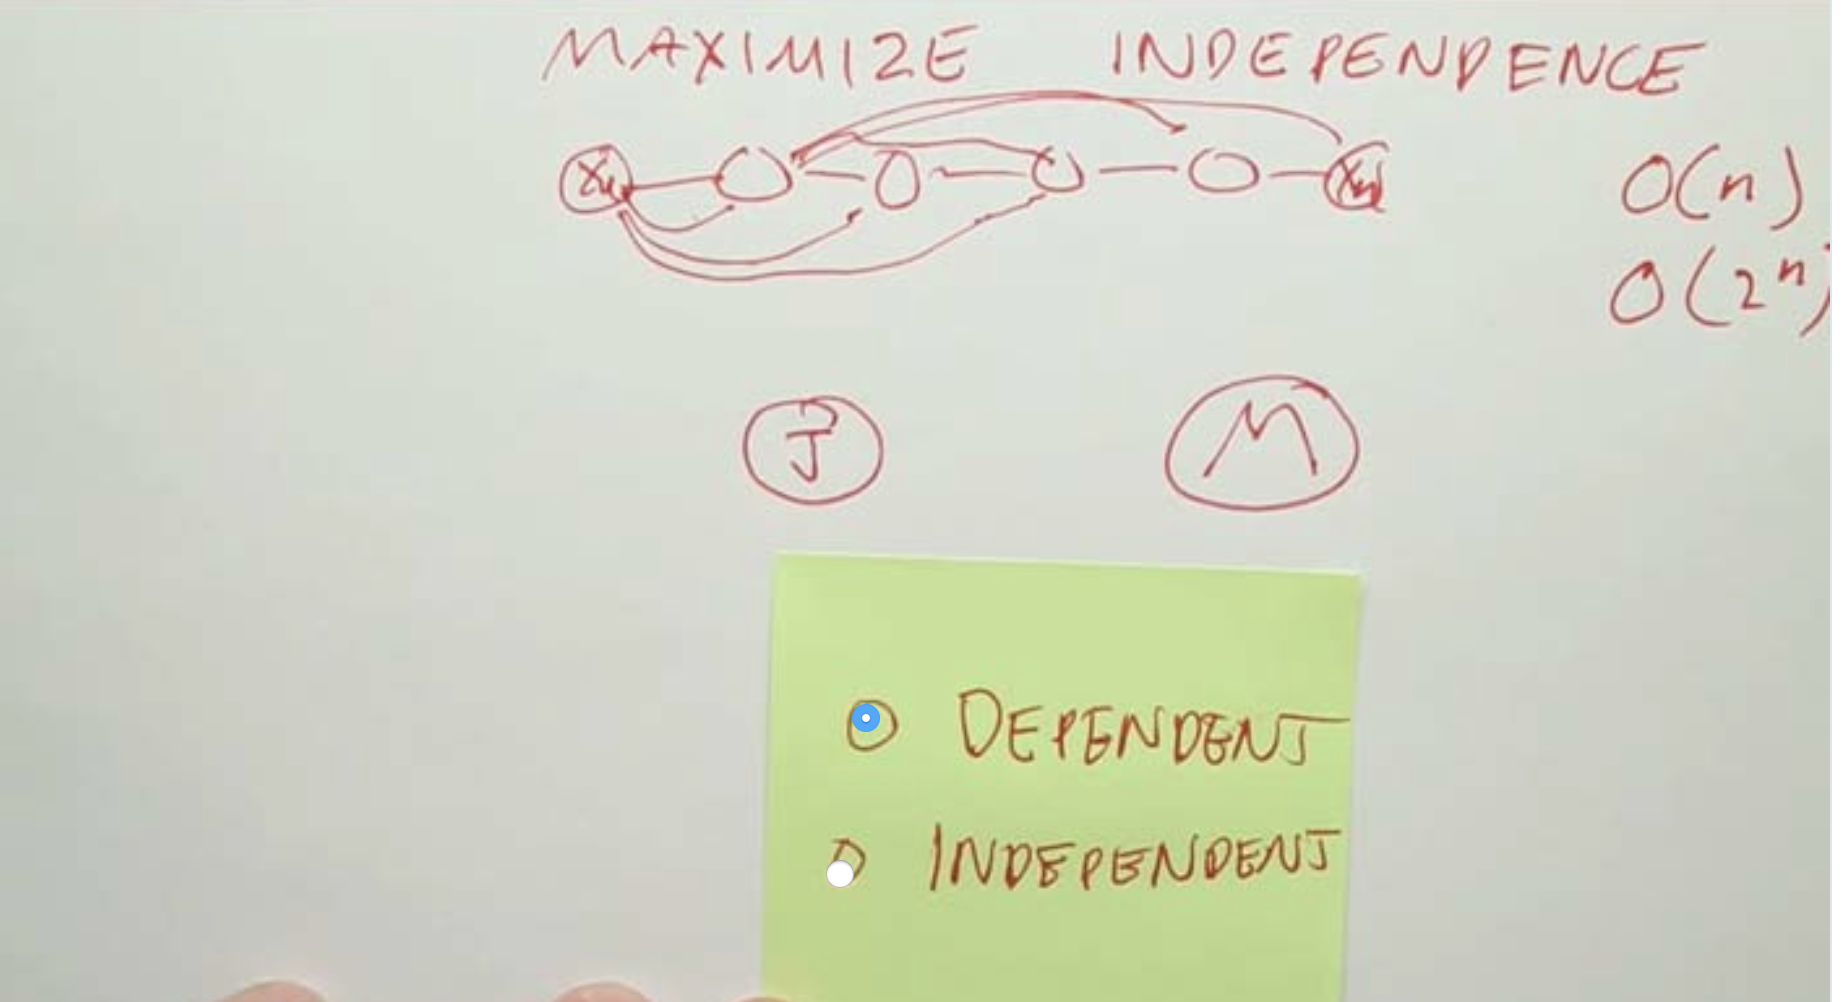 MAXIMIZE INDEPENDENCE
X₁ Xₙ
O(n)
O(2ⁿ)
J M
DEPENDENT
INDEPENDENT